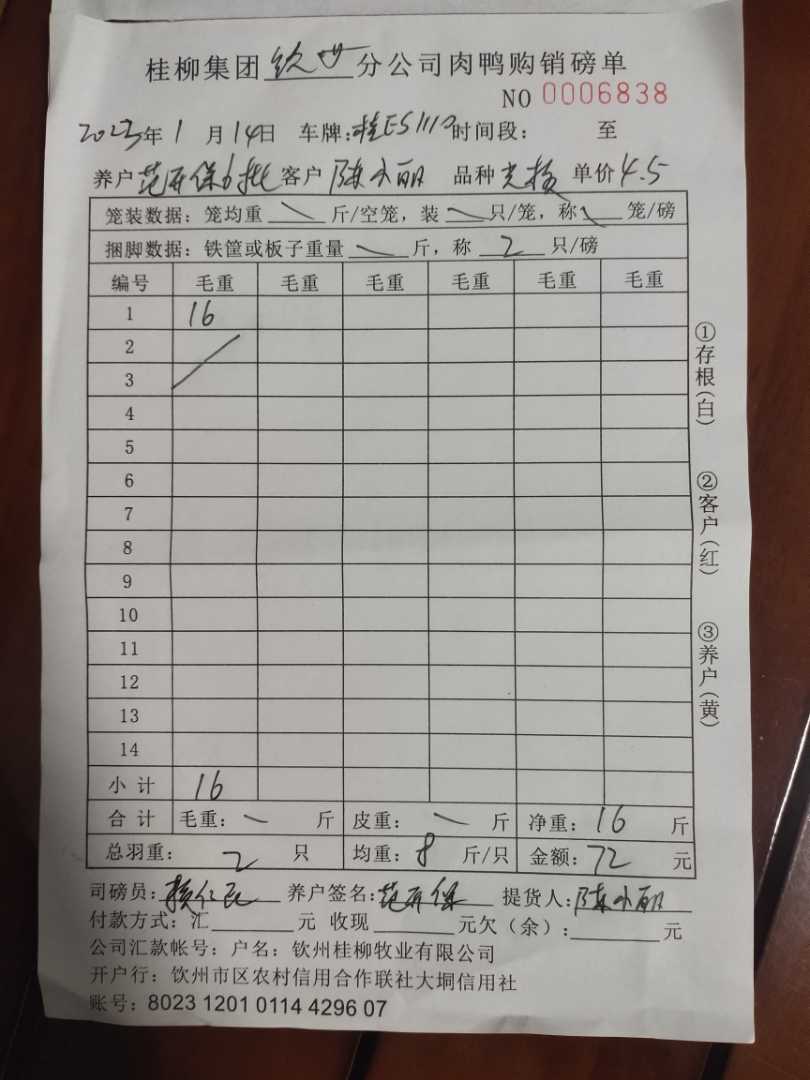 桂柳集团钦州分公司肉鸭购销磅单
NO 0006838
2023年1月14日 车牌:桂E 时间段: 至
养户 保 批 客户 陈小丽 品种 单价4.5
笼装数据:笼均重 \ 斤/空笼,装 \ 只/笼,称 \ 笼/磅
捆脚数据:铁筐或板子重量 \ 斤,称 2 只/磅
编号 毛重 毛重 毛重 毛重 毛重 毛重
1 16
2
3
4
5
6
7
8
9
10
11
12
13
14
小计 16
合计 毛重: \ 斤 皮重: \ 斤 净重: 16 斤
总羽重: 2 只 均重: 8 斤/只 金额: 72 元
司磅员: 养户签名: 保 提货人: 陈小丽
付款方式:汇 元 收现 元欠(余): 元
公司汇款帐号:户名:钦州桂柳牧业有限公司
开户行:钦州市区农村信用合作联社大垌信用社
账号:8023 1201 0114 4296 07
①存根(白)
②客户(红)
③养户(黄)